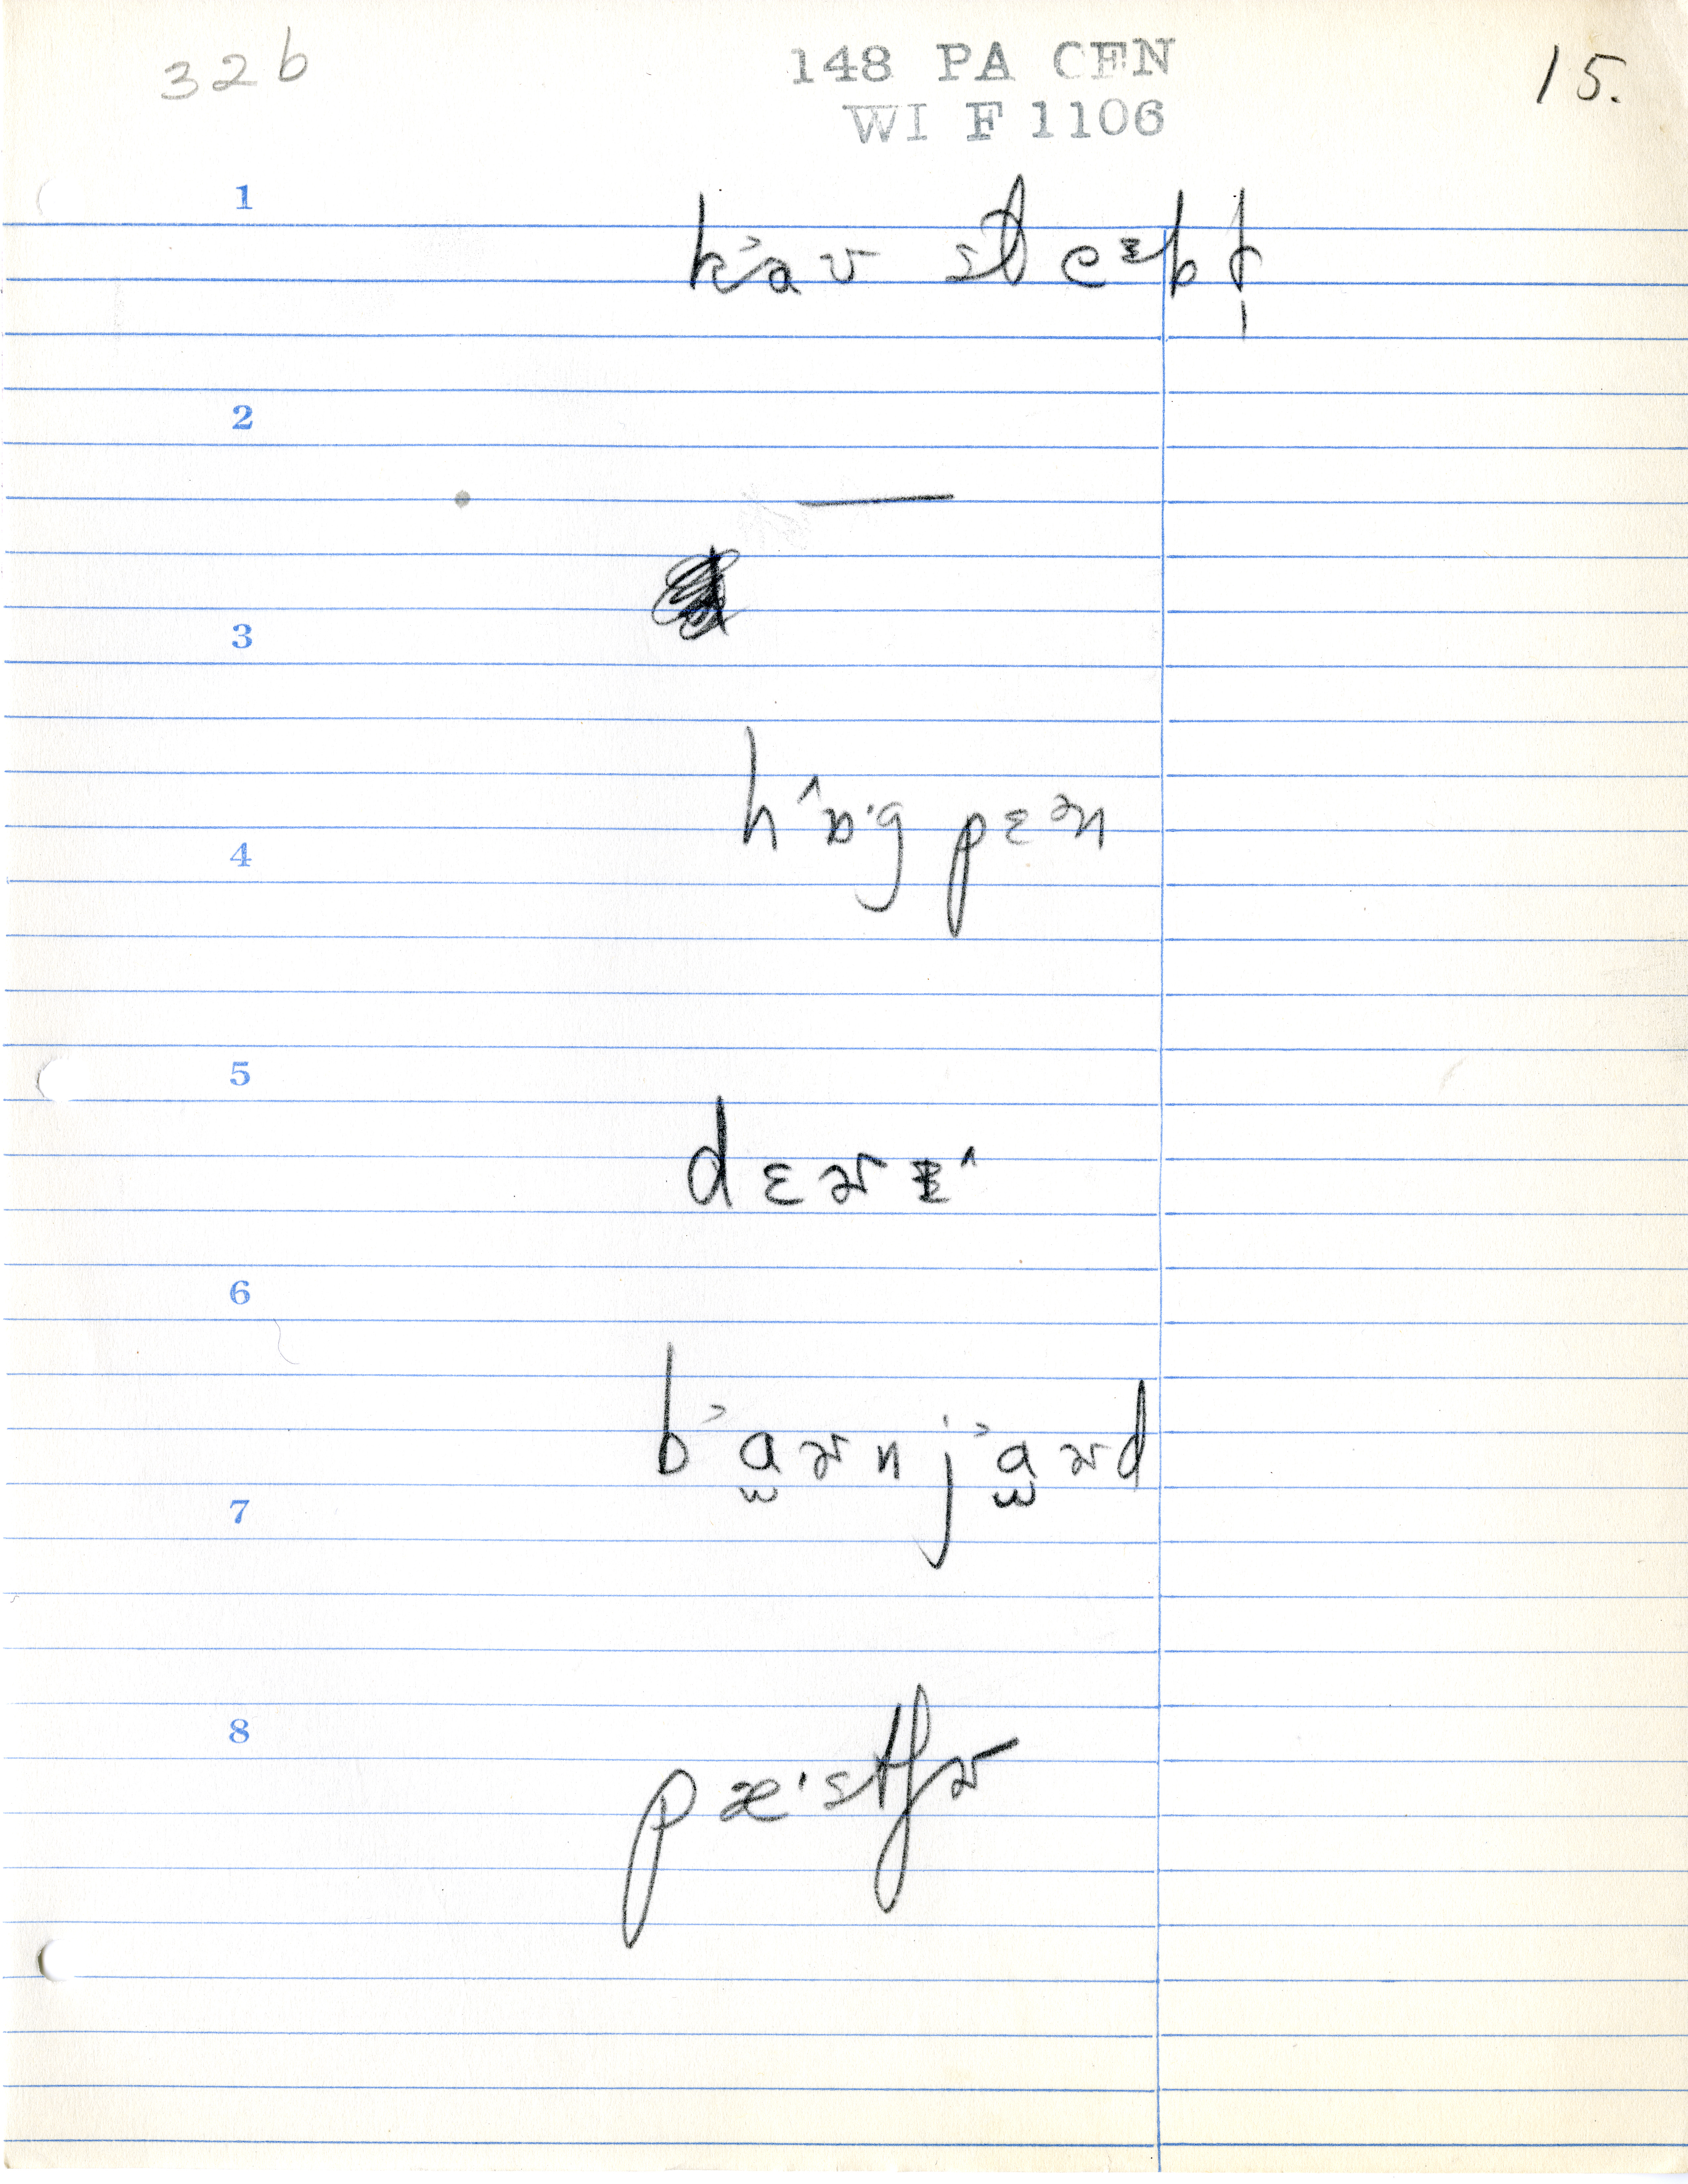 32b
148 PA CEN
WI F 1106
15.
1
k˃aʊ stɛᵻbḷ
2
—
3
4
h ˄ɒ·g pɛɚn
5
dɛɚᵻ˄
6
b˃a̫ɚn j˃a̫ɚd
7
8
pæ·stʃɚ